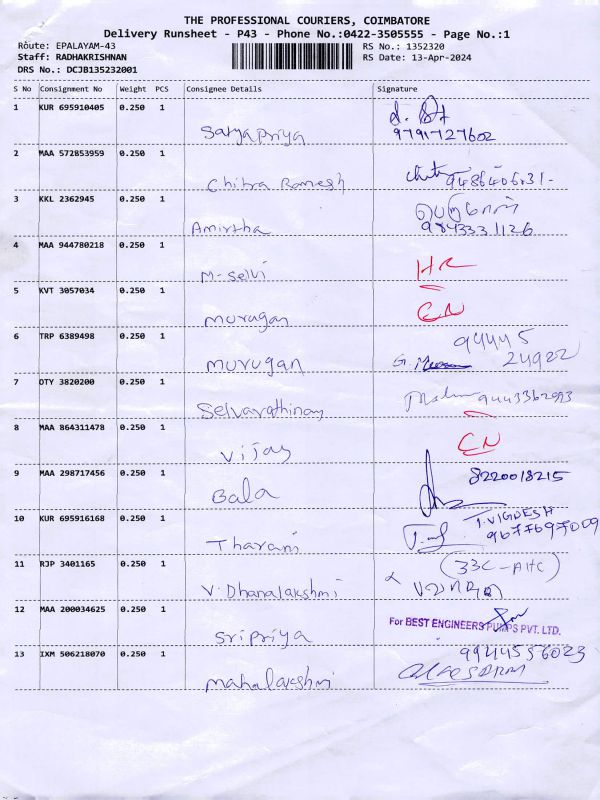 THE PROFESSIONAL COURIERS, COIMBATORE
Delivery Runsheet - P43 - Phone No.:0422-3505555 - Page No.:1
Route: EPALAYAM-43
Staff: RADHAKRISHNAN
DRS No.: DCJB135232001
RS No.: 1352320
RS Date: 13-Apr-2024
S No Consignment No Weight PCS Consignee Details Signature
1 KUR 695910405 0.250 1
Satyapriya 9791727602
2 MAA 572853959 0.250 1
Chitra Ramesh
3 KKL 2362945 0.250 1
Amirtha 9843331126
4 MAA 944780218 0.250 1
M-Selvi HR
5 KVT 3057034 0.250 1
murugan CN
6 TRP 6389498 0.250 1 94445
murugan 24922
7 OTY 3820200 0.250 1
Selvarathinam 9443362093
8 MAA 864311478 0.250 1
Vijay CN
9 MAA 298717456 0.250 1 8220018215
Bala
10 KUR 695916168 0.250 1 T.VIGNESH
Tharani 9677697009
11 RJP 3401165 0.250 1 (33C-AHC)
V. Dhanalakshmi
12 MAA 200034625 0.250 1 For BEST ENGINEERS PUMPS PVT. LTD.
Sripriya
13 IXM 506218070 0.250 1 9944556023
mahalakshmi